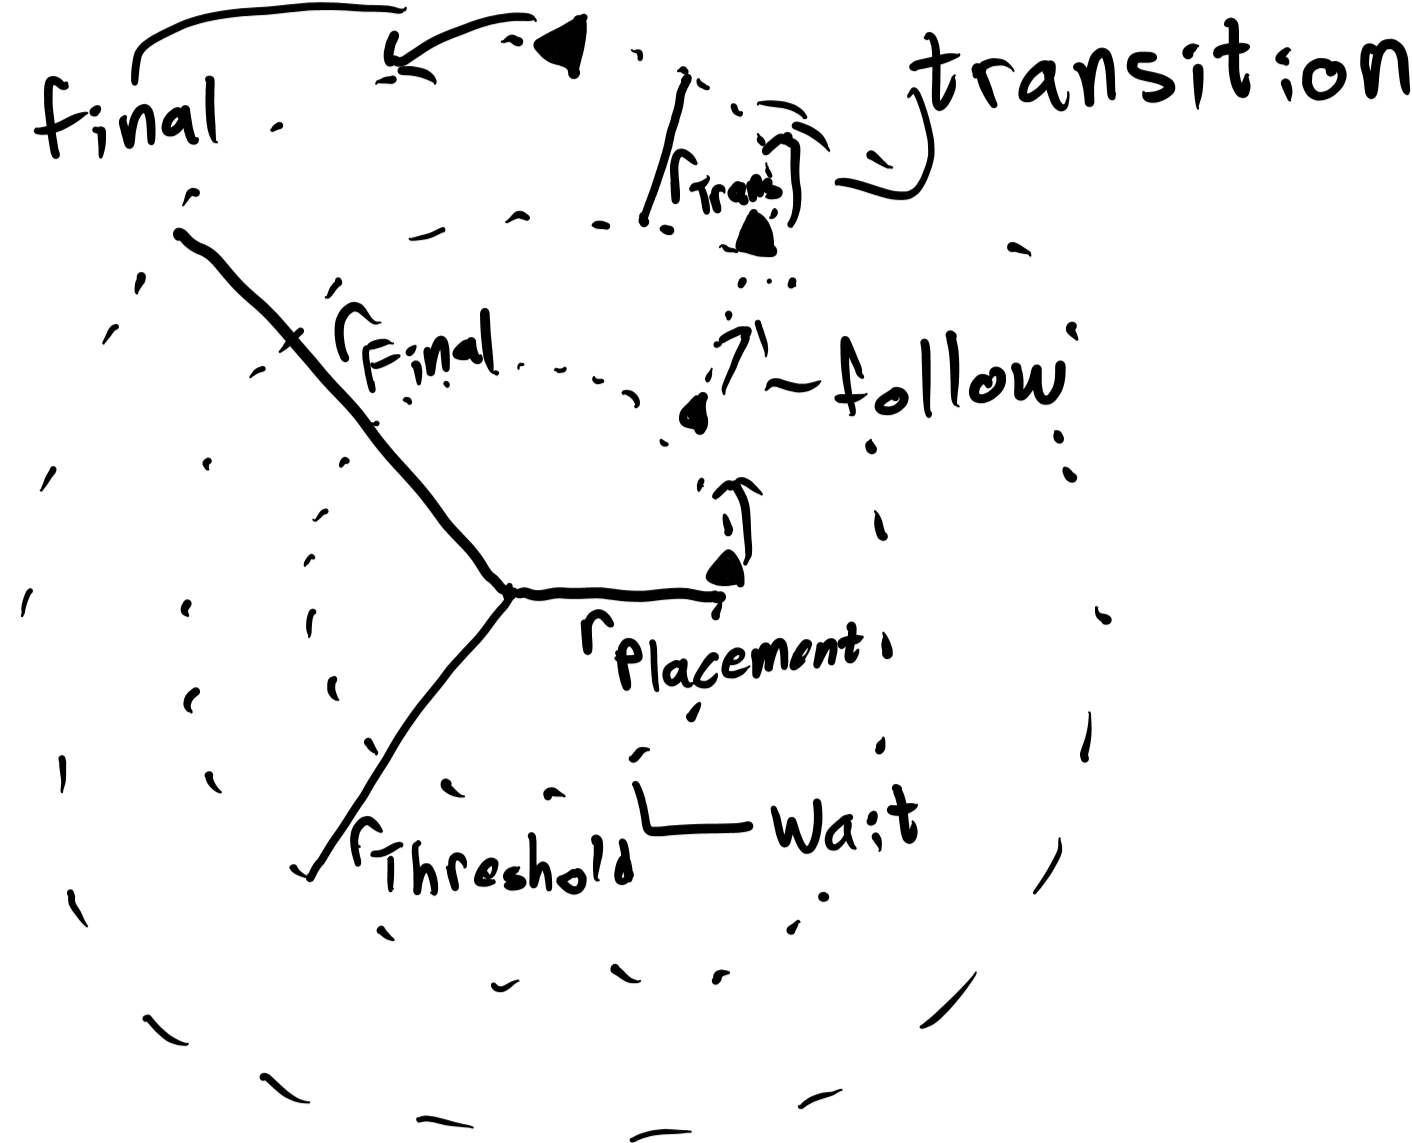 final
transition
rTrans
rFinal
follow
rPlacement
Wait
rThreshold